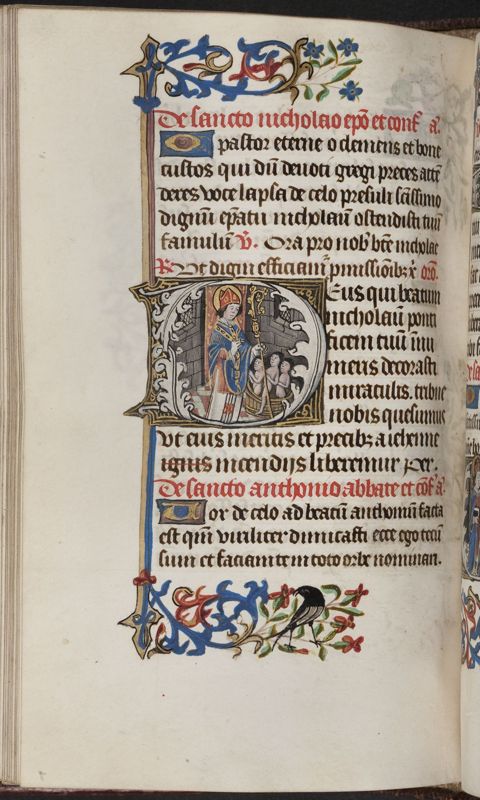 De sancto nicholao ep̄o et conf̄ a.
O pastor eterne o clemens et bone
custos qui dū deuoti gregi preces attē
deres voce lapsa de celo presuli sc̄issimo
dignū ep̄atu nicholaū ostendisti tuū
famulū V̄. Ora pro nob̄ bt̄e nicholae
R̄ Vt digni efficiam̄ p̄missiōibꝫ x̄ orō.
Deus qui beatum
nicholaū ponti
ficem tuū īnu
meris decorasti
miraculis. tribue
nobis quesumus
vt eius meritis et precibꝫ a iehenne
ignis incendijs liberemur Per.
De sancto anthonio abbate et cōf a.
Vox de celo ad beatū anthoniū facta
est qm̄ viriliter dimicasti ecce ego tecū
sum et faciam te in toto orbe nominari.